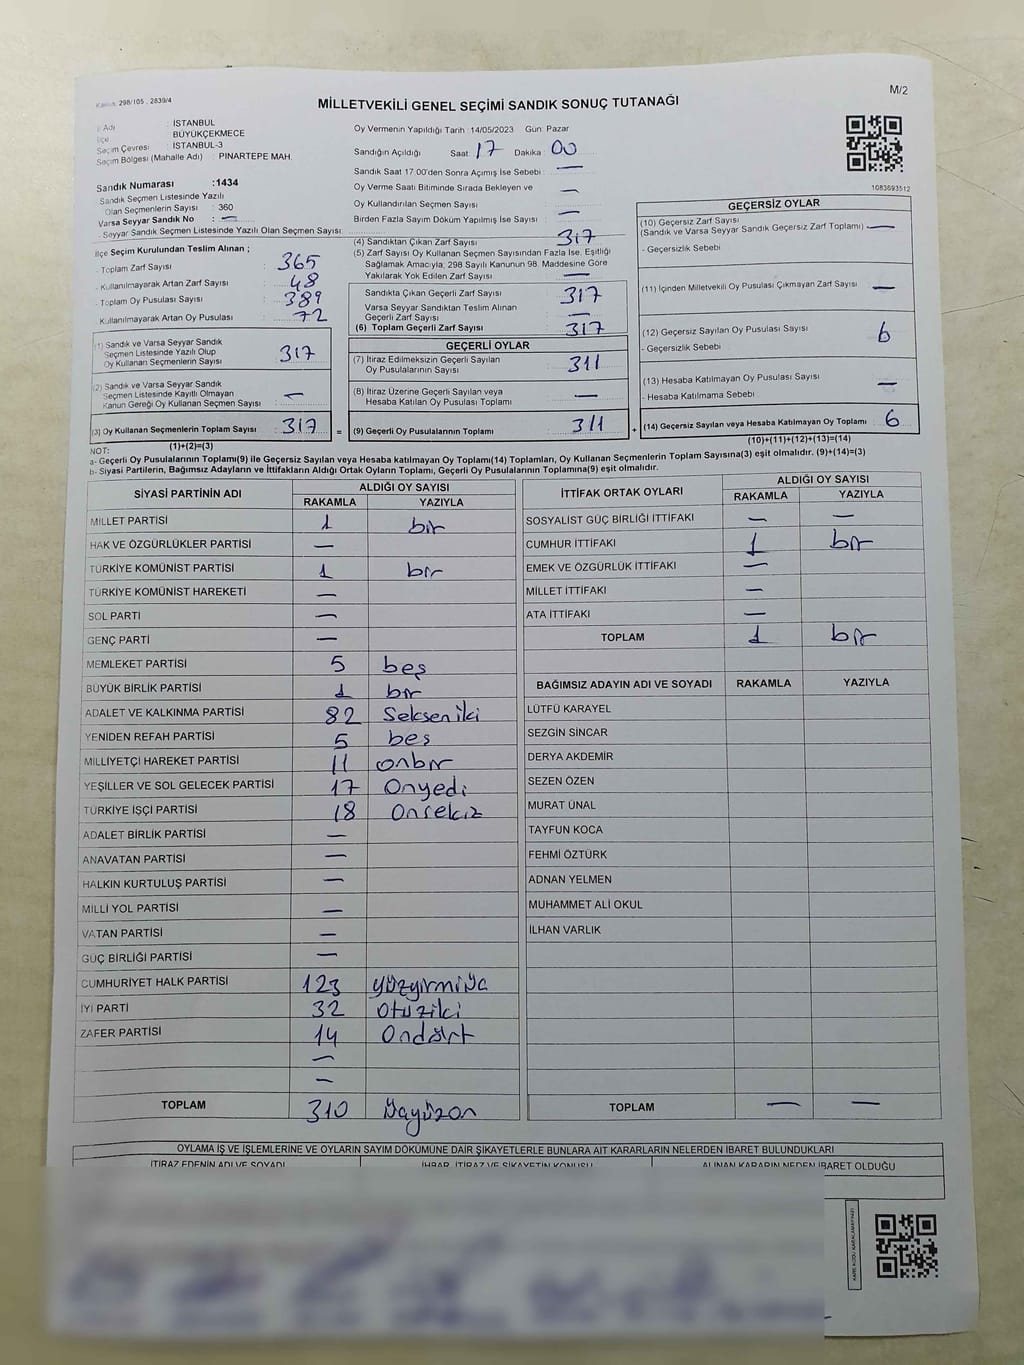 Kanun: 298/105 , 2839/4
M/2
MİLLETVEKİLİ GENEL SEÇİMİ SANDIK SONUÇ TUTANAĞI
İl Adı : İSTANBUL
İlçe : BÜYÜKÇEKMECE
Seçim Çevresi : İSTANBUL-3
Seçim Bölgesi (Mahalle Adı) : PINARTEPE MAH.
Sandık Numarası :1434
Sandık Seçmen Listesinde Yazılı
Olan Seçmenlerin Sayısı : 360
Varsa Seyyar Sandık No : —
- Seyyar Sandık Seçmen Listesinde Yazılı Olan Seçmen Sayısı
Oy Vermenin Yapıldığı Tarih :14/05/2023 Gün: Pazar
Sandığın Açıldığı Saat : 17 Dakika : 00
Sandık Saat 17.00'den Sonra Açımış İse Sebebi : —
Oy Verme Saati Bitiminde Sırada Bekleyen ve
Oy Kullandırılan Seçmen Sayısı : —
Birden Fazla Sayım Döküm Yapılmış İse Sayısı : —
1083693512
İlçe Seçim Kurulundan Teslim Alınan ;
- Toplam Zarf Sayısı : 365
- Kullanılmayarak Artan Zarf Sayısı : 48
- Toplam Oy Pusulası Sayısı : 389
Kullanılmayarak Artan Oy Pusulası : 72
(1) Sandık ve Varsa Seyyar Sandık
Seçmen Listesinde Yazılı Olup
Oy Kullanan Seçmenlerin Sayısı : 317
(2) Sandık ve Varsa Seyyar Sandık
Seçmen Listesinde Kayıtlı Olmayan
Kanun Gereği Oy Kullanan Seçmen Sayısı : —
(3) Oy Kullanan Seçmenlerin Toplam Sayısı : 317
(1)+(2)=(3)
(4) Sandıktan Çıkan Zarf Sayısı : 317
(5) Zarf Sayısı Oy Kullanan Seçmen Sayısından Fazla İse, Eşitliği
Sağlamak Amacıyla, 298 Sayılı Kanunun 98. Maddesine Göre
Yakılarak Yok Edilen Zarf Sayısı : —
Sandıkta Çıkan Geçerli Zarf Sayısı : 317
Varsa Seyyar Sandıktan Teslim Alınan
Geçerli Zarf Sayısı : —
(6) Toplam Geçerli Zarf Sayısı : 317
GEÇERLİ OYLAR
(7) İtiraz Edilmeksizin Geçerli Sayılan
Oy Pusulalarının Sayısı : 311
(8) İtiraz Üzerine Geçerli Sayılan veya
Hesaba Katılan Oy Pusulası Toplamı : —
= (9) Geçerli Oy Pusulalarının Toplamı : 311
GEÇERSİZ OYLAR
(10) Geçersiz Zarf Sayısı
(Sandık ve Varsa Seyyar Sandık Geçersiz Zarf Toplamı) : —
- Geçersizlik Sebebi :
(11) İçinden Milletvekili Oy Pusulası Çıkmayan Zarf Sayısı : —
(12) Geçersiz Sayılan Oy Pusulası Sayısı : 6
- Geçersizlik Sebebi :
(13) Hesaba Katılmayan Oy Pusulası Sayısı : —
- Hesaba Katılmama Sebebi :
+ (14) Geçersiz Sayılan veya Hesaba Katılmayan Oy Toplamı : 6
(10)+(11)+(12)+(13)=(14)
NOT:
a- Geçerli Oy Pusulalarının Toplamı(9) ile Geçersiz Sayılan veya Hesaba katılmayan Oy Toplamı(14) Toplamları, Oy Kullanan Seçmenlerin Toplam Sayısına(3) eşit olmalıdır. (9)+(14)=(3)
b- Siyasi Partilerin, Bağımsız Adayların ve İttifakların Aldığı Ortak Oyların Toplamı, Geçerli Oy Pusulalarının Toplamına(9) eşit olmalıdır.
SİYASİ PARTİNİN ADI ALDIĞI OY SAYISI
RAKAMLA YAZIYLA
MİLLET PARTİSİ 1 bir
HAK VE ÖZGÜRLÜKLER PARTİSİ —
TÜRKİYE KOMÜNİST PARTİSİ 1 bir
TÜRKİYE KOMÜNİST HAREKETİ —
SOL PARTİ —
GENÇ PARTİ —
MEMLEKET PARTİSİ 5 beş
BÜYÜK BİRLİK PARTİSİ 1 bir
ADALET VE KALKINMA PARTİSİ 82 Sekseniki
YENİDEN REFAH PARTİSİ 5 beş
MİLLİYETÇİ HAREKET PARTİSİ 11 onbir
YEŞİLLER VE SOL GELECEK PARTİSİ 17 Onyedi
TÜRKİYE İŞÇİ PARTİSİ 18 Onsekiz
ADALET BİRLİK PARTİSİ —
ANAVATAN PARTİSİ —
HALKIN KURTULUŞ PARTİSİ —
MİLLİ YOL PARTİSİ —
VATAN PARTİSİ —
GÜÇ BİRLİĞİ PARTİSİ —
CUMHURİYET HALK PARTİSİ 123 yüzyirmiüç
İYİ PARTİ 32 Otuziki
ZAFER PARTİSİ 14 Ondört
—
—
TOPLAM 310 üçyüzon
İTTİFAK ORTAK OYLARI ALDIĞI OY SAYISI
RAKAMLA YAZIYLA
SOSYALİST GÜÇ BİRLİĞİ İTTİFAKI — —
CUMHUR İTTİFAKI 1 bir
EMEK VE ÖZGÜRLÜK İTTİFAKI —
MİLLET İTTİFAKI —
ATA İTTİFAKI —
TOPLAM 1 bir
BAĞIMSIZ ADAYIN ADI VE SOYADI RAKAMLA YAZIYLA
LÜTFÜ KARAYEL
SEZGİN SİNCAR
DERYA AKDEMİR
SEZEN ÖZEN
MURAT ÜNAL
TAYFUN KOCA
FEHMİ ÖZTÜRK
ADNAN YELMEN
MUHAMMET ALİ OKUL
İLHAN VARLIK
TOPLAM — —
OYLAMA İŞ VE İŞLEMLERİNE VE OYLARIN SAYIM DÖKÜMÜNE DAİR ŞİKAYETLERLE BUNLARA AİT KARARLARIN NELERDEN İBARET BULUNDUKLARI
İTİRAZ EDENİN ADI VE SOYADI İHBAR, İTİRAZ VE ŞİKAYETİN KONUSU ALINAN KARARIN NEDEN İBARET OLDUĞU
KARE KODU KARALAMAYINIZ!